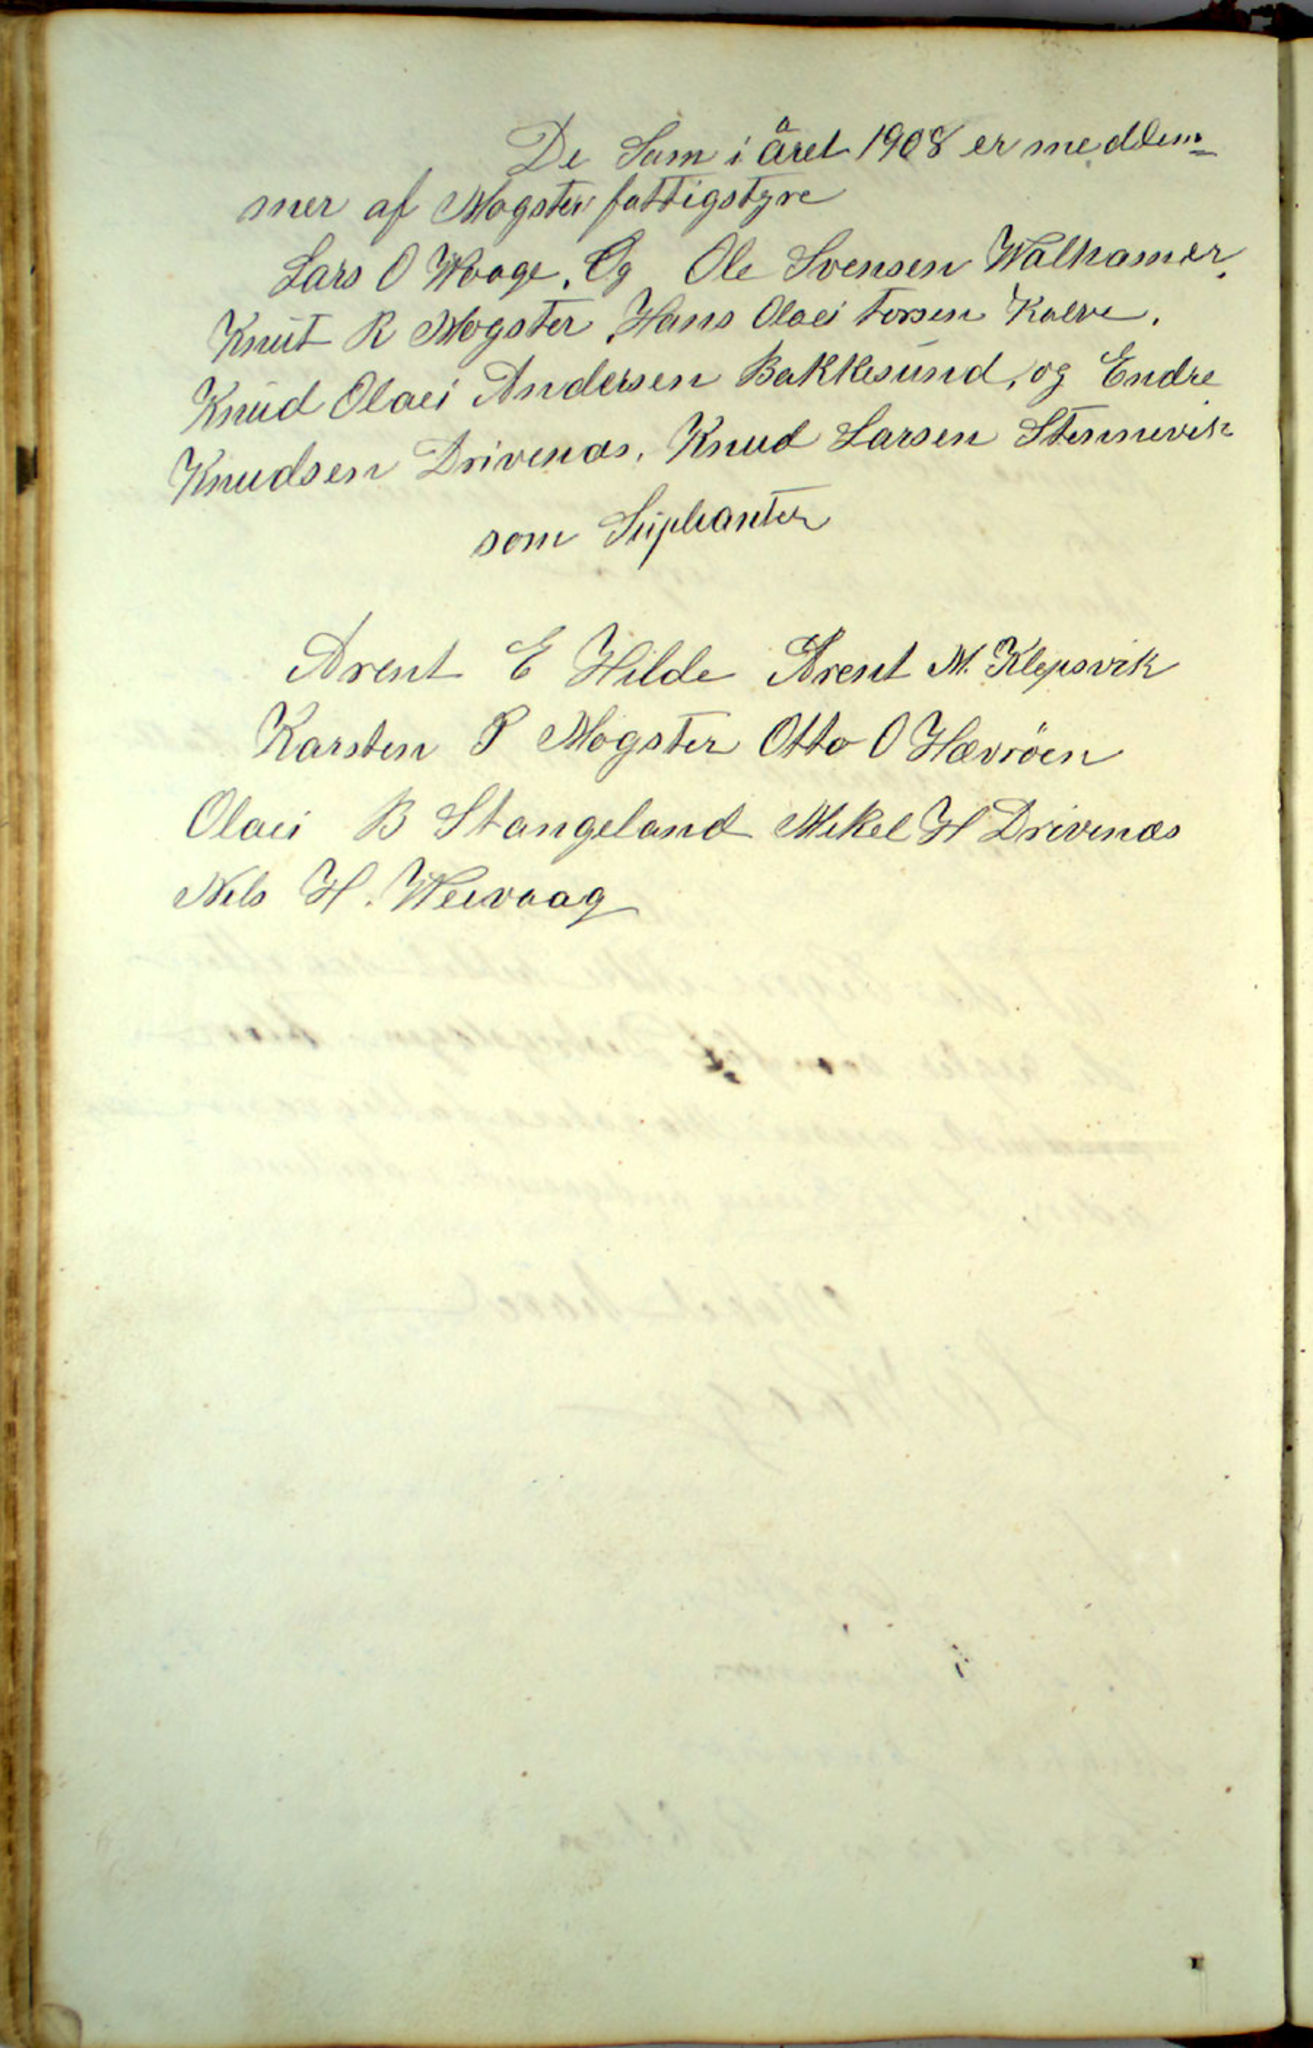 De Som i året 1908 er medlem=
mer af Møgster fattigstyre
Lars O Waage. Og Ole Svensen Walhamer.
Knut R Møgster, Hans Olaei Torsen Kalve.
Knud Olaei Andersen Bakkesund, og Endre
Knudsen Drivenæs, Knud Larsen Stennevik
som Supleanter
Arent E Hilde Arent M. Klepsvik
Karsten P Møgster Otto O Hævrøen
Olaei B Stangeland Mikel H Drivenæs
Nels H. Weivaag